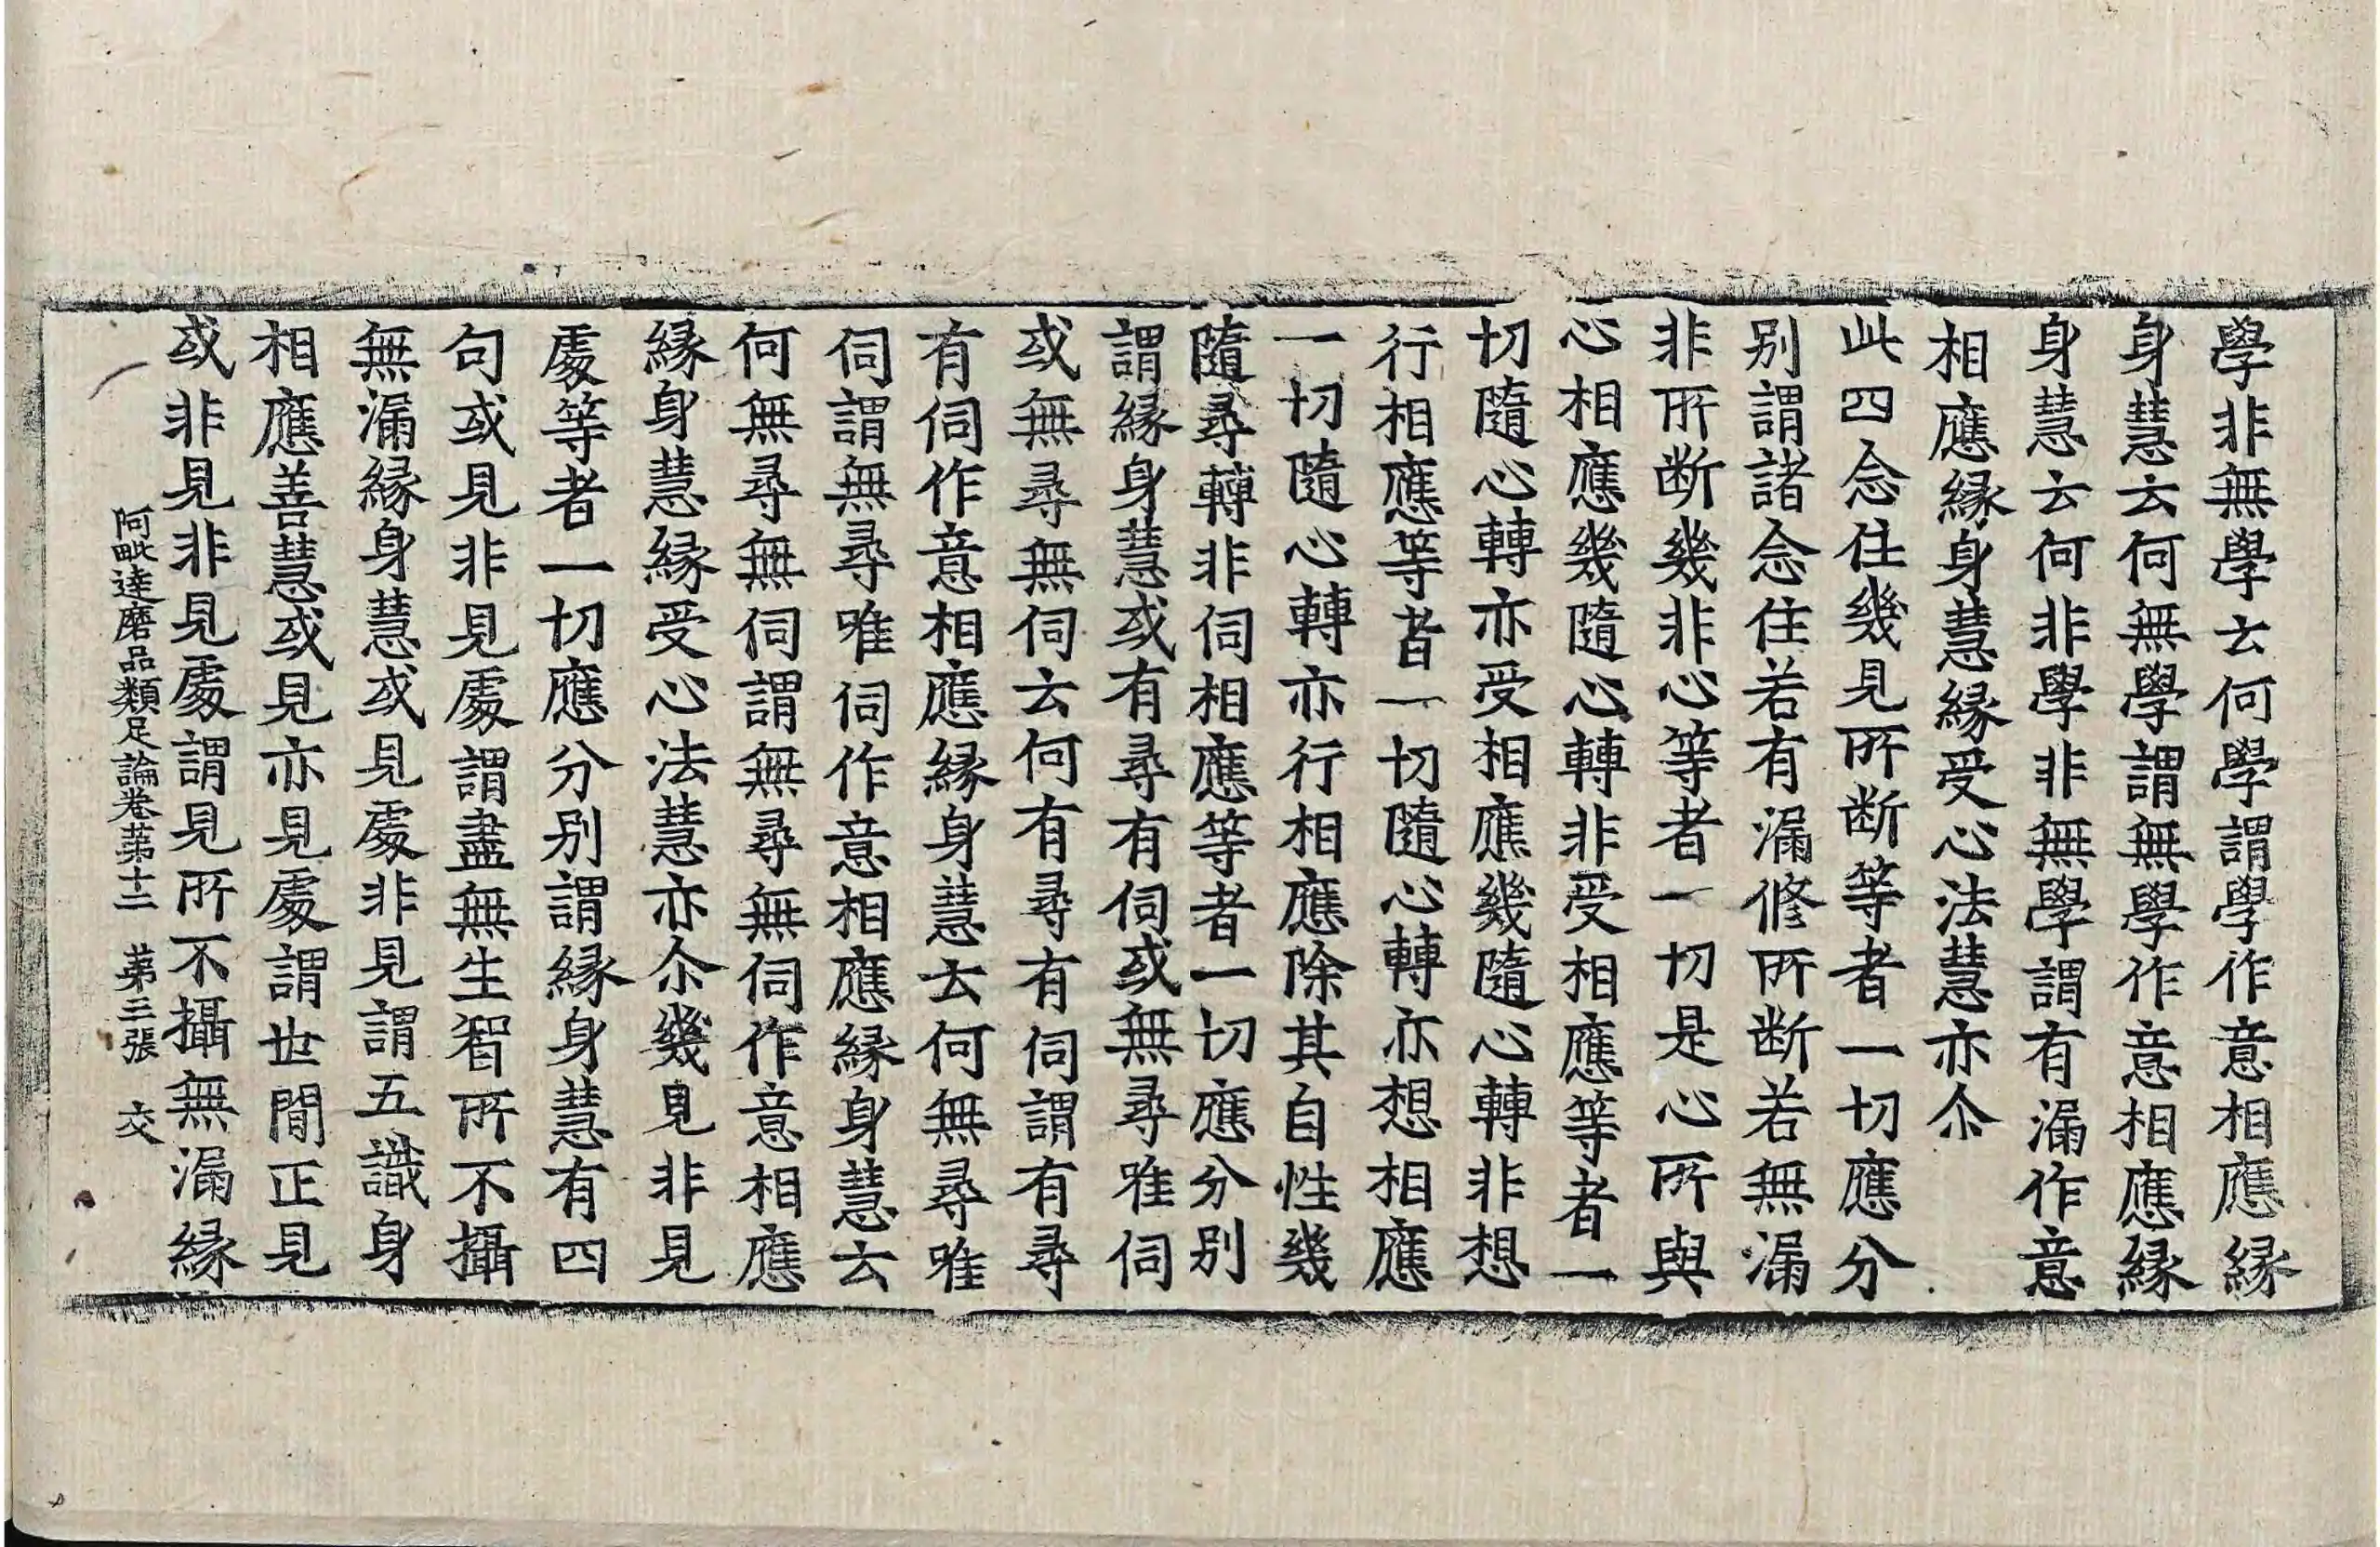 學非無學云何學謂學作意相應縁
身慧云何無學謂無學作意相應縁
身慧云何非學非無學謂有漏作意
相應縁身慧縁受心法慧亦尒
此四念住幾見所断等者一切應分
别謂諸念住若有漏修所断若無漏
非所断幾非心等者一切是心所與
心相應幾隨心轉非受相應等者一
切隨心轉亦受相應幾隨心轉非想
行相應等者一切隨心轉亦想相應
一切隨心轉亦行相應除其自性幾
隨尋轉非伺相應等者一切應分别
謂縁身慧或有尋有伺或無尋唯伺
或無尋無伺云何有尋有伺謂有尋
有伺作意相應縁身慧云何無尋唯
伺謂無尋唯伺作意相應縁身慧云
何無尋無伺謂無尋無伺作意相應
縁身慧縁受心法慧亦尒幾見非見
處等者一切應分别謂縁身慧有四
句或見非見處謂盡無生智所不攝
無漏縁身慧或見處非見謂五識身
相應善慧或見亦見處謂世間正見
或非見非見處謂見所不攝無漏縁
阿毗達磨品類足論卷苐十二 苐三張 交